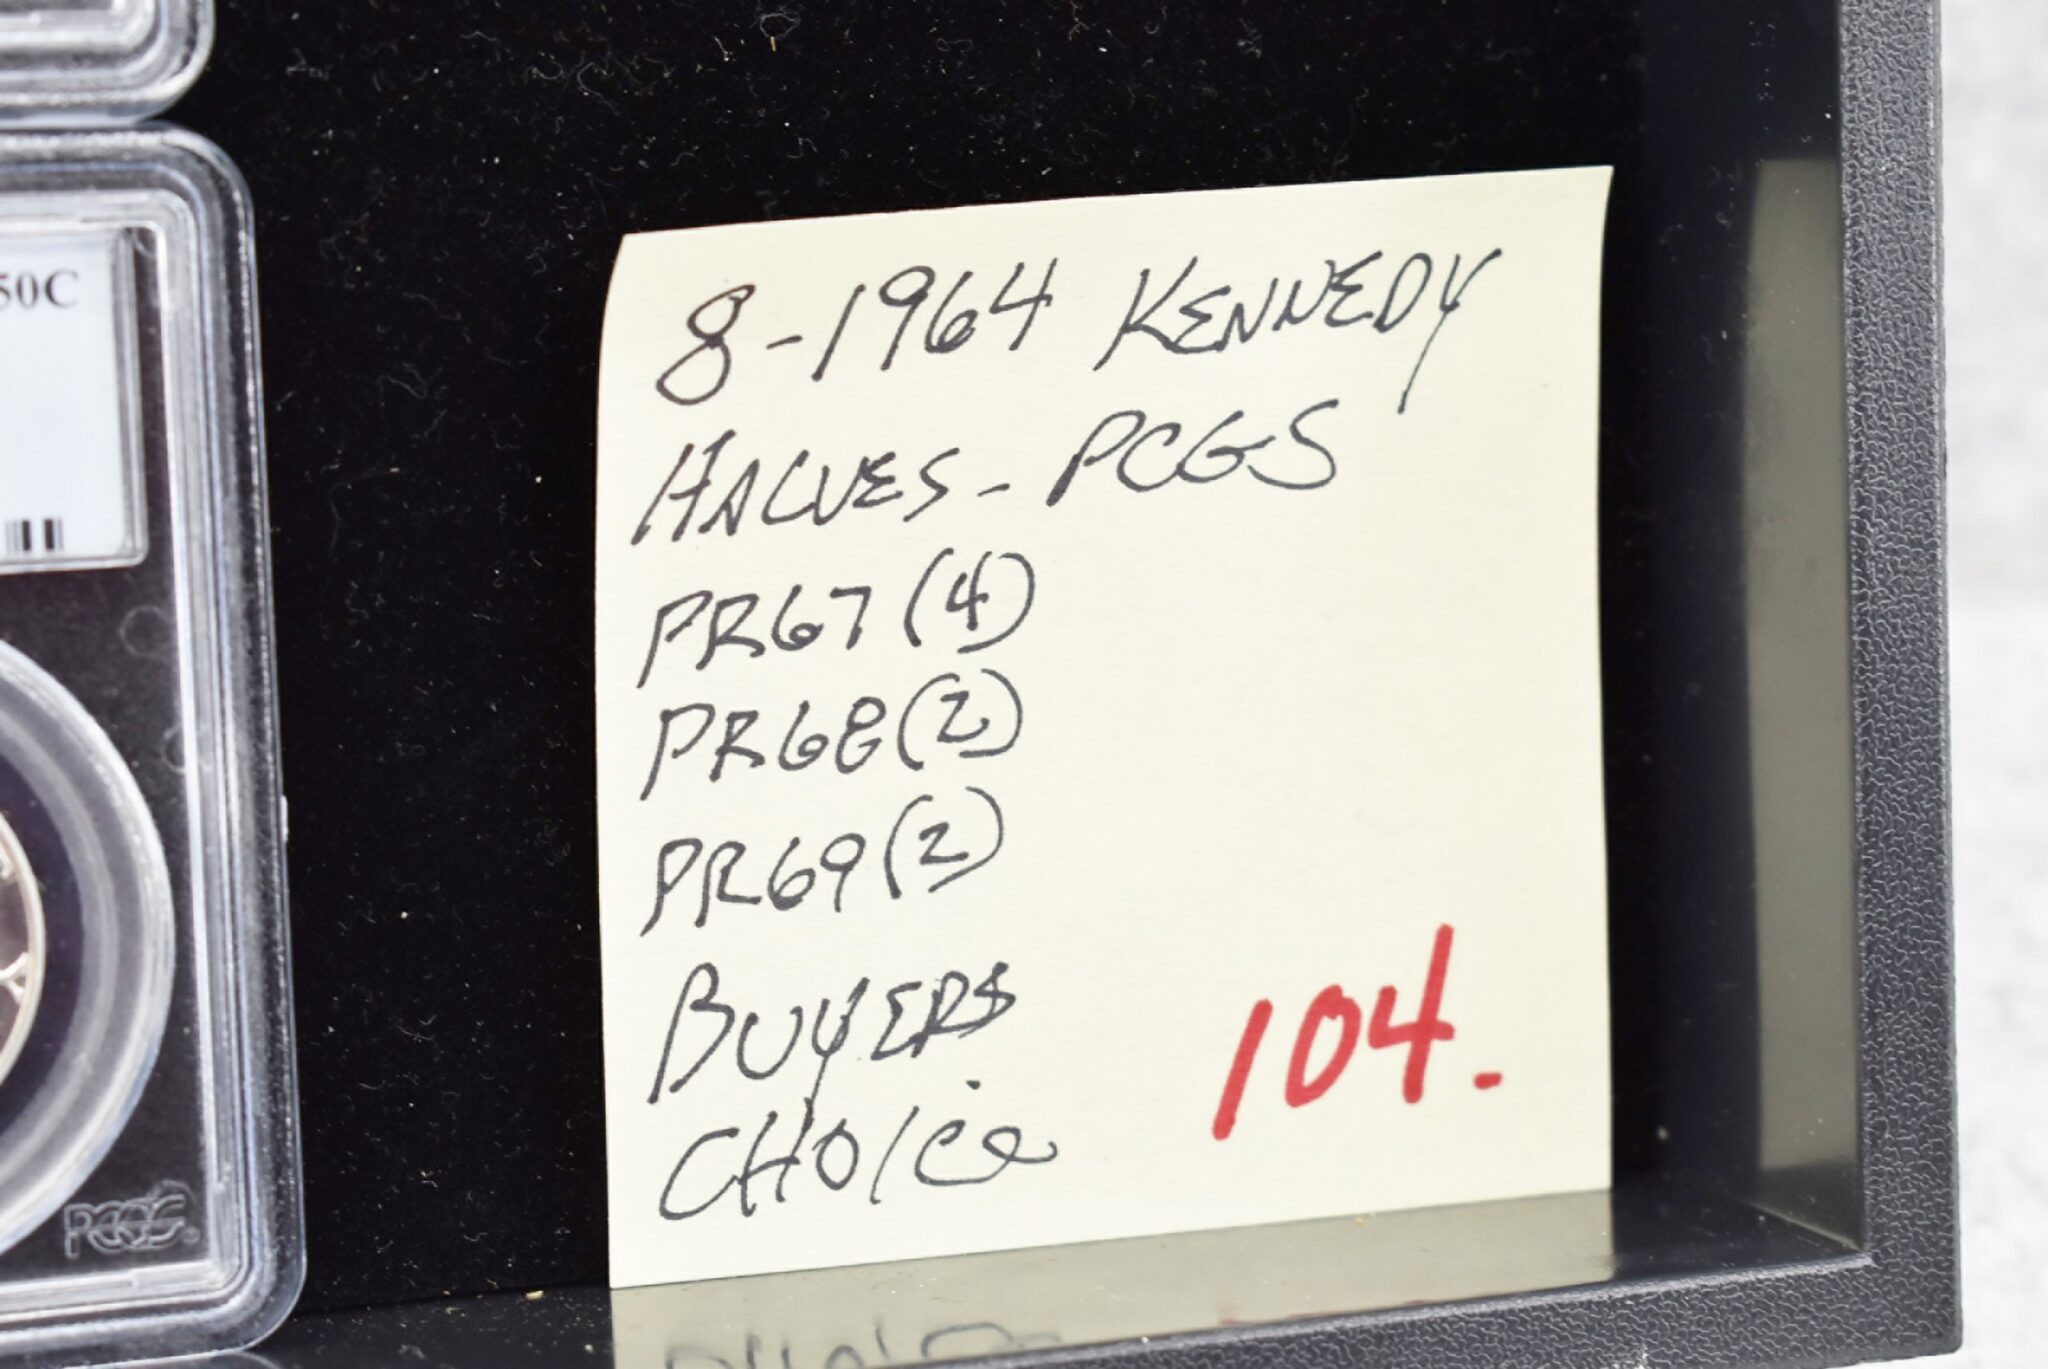 50C
8-1964 KENNEDY
HALVES - PCGS
PR67 (4)
PR68 (2)
PR69 (2)
BUYERS
CHOICE
104.
PCGS